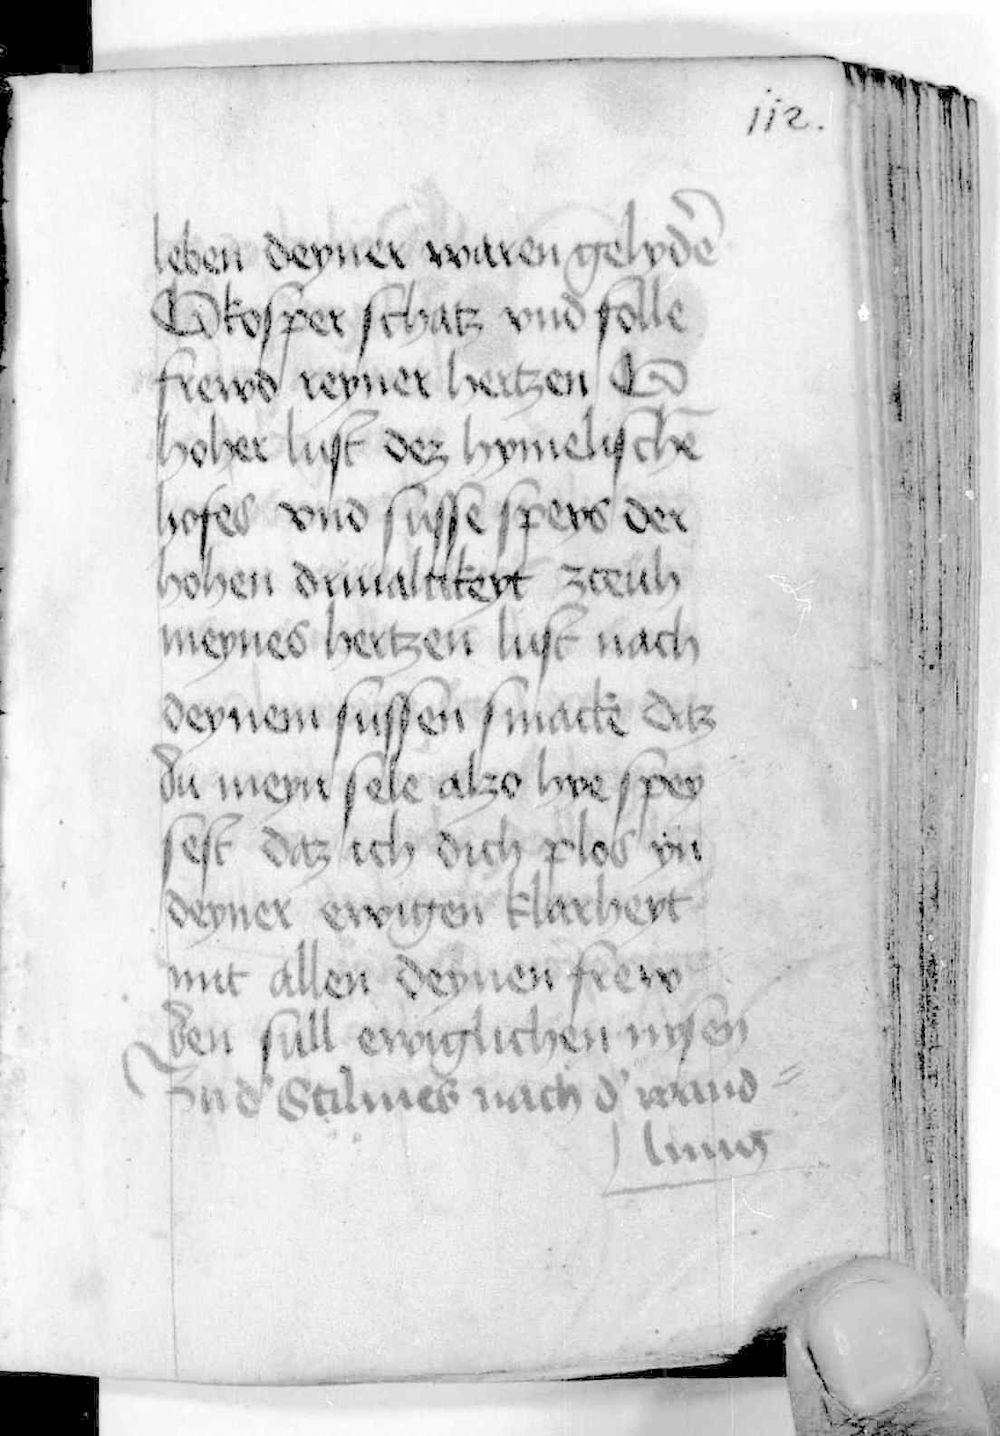 112.
leben deyner waren gelydē
O kosper schatz vnd folle
frewd reyner hertzen O
hoher lust dez hymelischē
hofes vnd susse speys der
hohen driualtikeyt zceuh
meynes hertzen lust nach
deynem sussen smacke daz
du meyn sele alzo hye spey
sest daz ich dich plos yn
deyner ewigen klarheyt
mit allen deynen frew
den sull ewiglichen nysen
In d' Stilmes nach d' wand=
lung